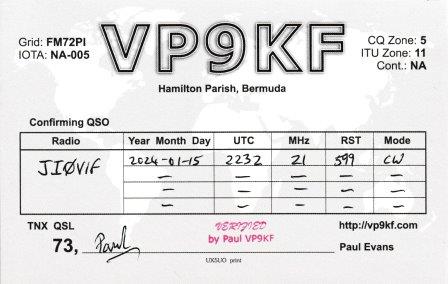 Grid: FM72PI
IOTA: NA-005
VP9KF
CQ Zone: 5
ITU Zone: 11
Cont.: NA
Hamilton Parish, Bermuda
Confirming QSO
Radio Year Month Day UTC MHz RST Mode
JI0VIF 2024-01-15 2232 21 599 CW
— — — — —
— — — — —
— — — — —
TNX QSL
VERIFIED
by Paul VP9KF
http://vp9kf.com
73, Paul
Paul Evans
UX5UO print